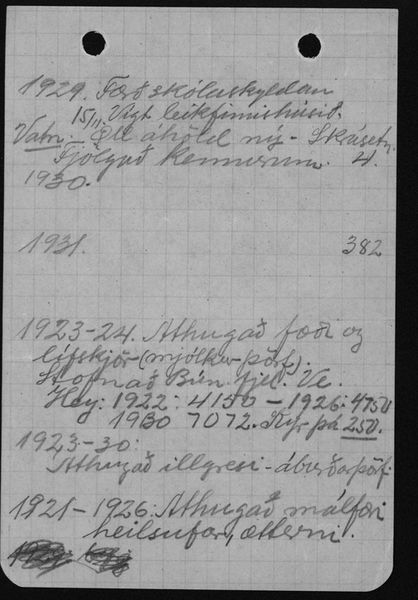 1929. Færð skólaskyldan
15/11. Vígt leikfimishúsið.
Vatn. Öll áhöld ný - Skúsetn.
Fjölgað kennurum. 4.
1930.
1931. 382
1923-24. Athugað fæði og
lífskjör-(mjólkur-þörf).
Stofnað Bún. fjel. Ve.
Hey: 1922: 4150 - 1926: 4750
1930 7072. Kýr þá 250.
1923-30:
Athugað illgresi - áburðaþörf.
1921-1926: Athugað málfæri
heilsufar, ætterni.